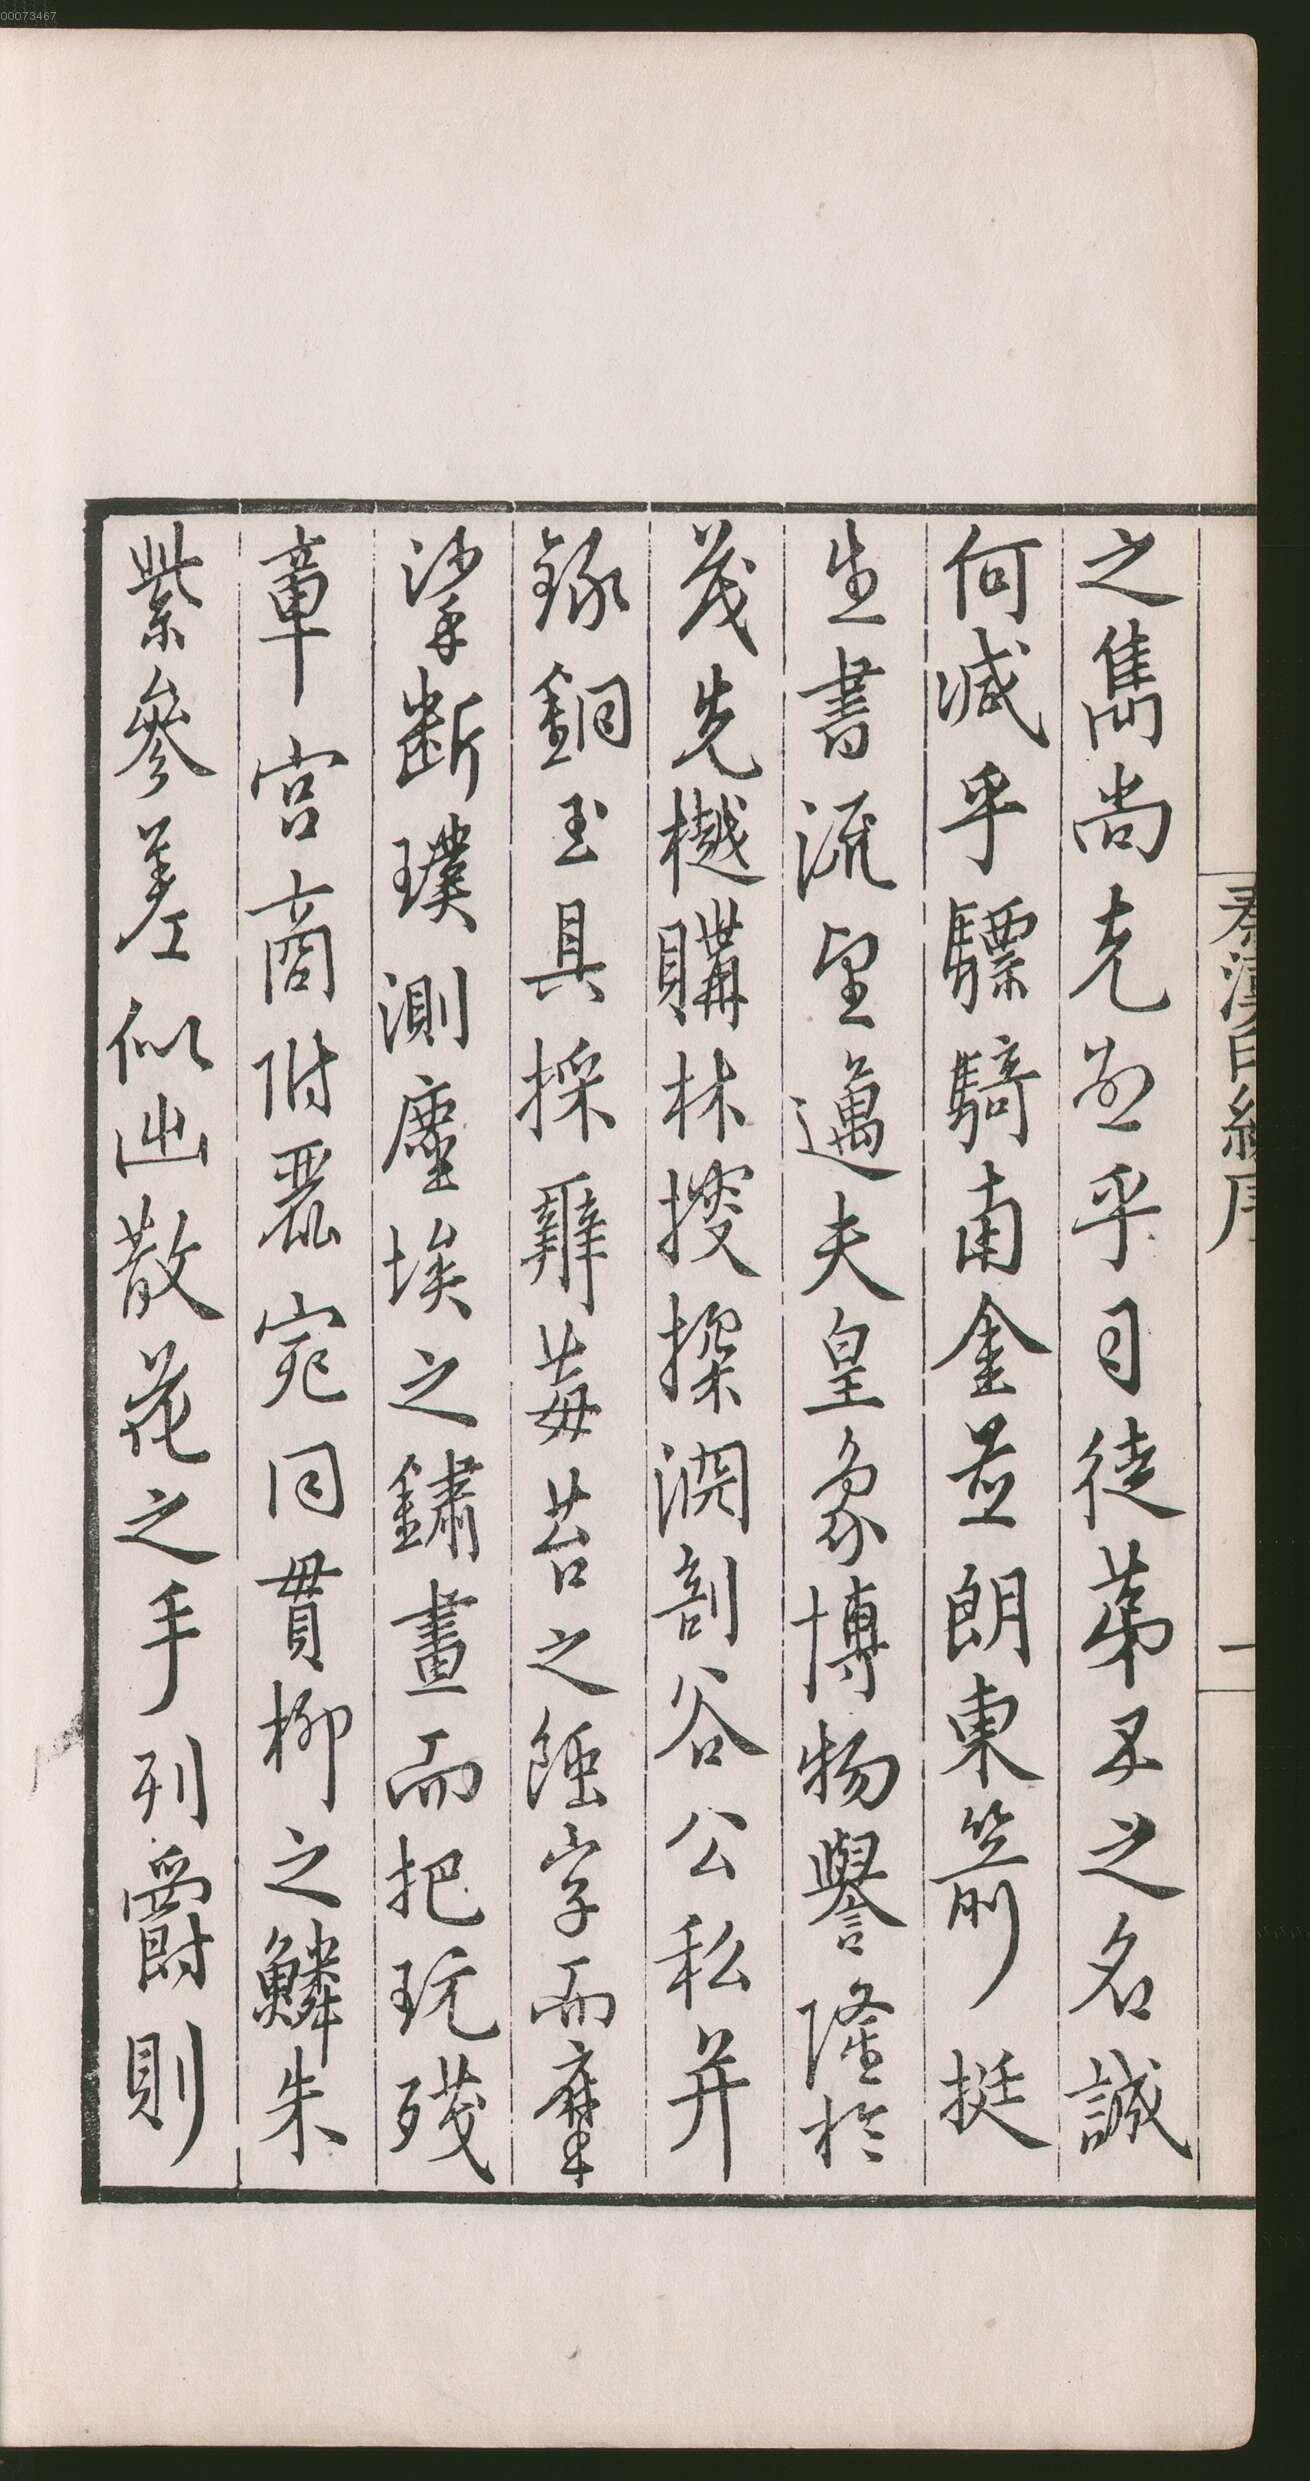 00073467
秦漢印統序
一
之雋尚克前乎司徒苐子之名誠
何减乎驃騎南金並朗東箭挺
生書流望邁夫皇象博物譽隆於
茂先樾購林搜探淵剖谷公私并
錄銅玉具採辨莓苔之蝕字而摩
挲斷璞測塵埃之鏽畫而把玩殘
章宮商附麗宛同貫柳之鱗朱
紫參差似出散花之手列爵則